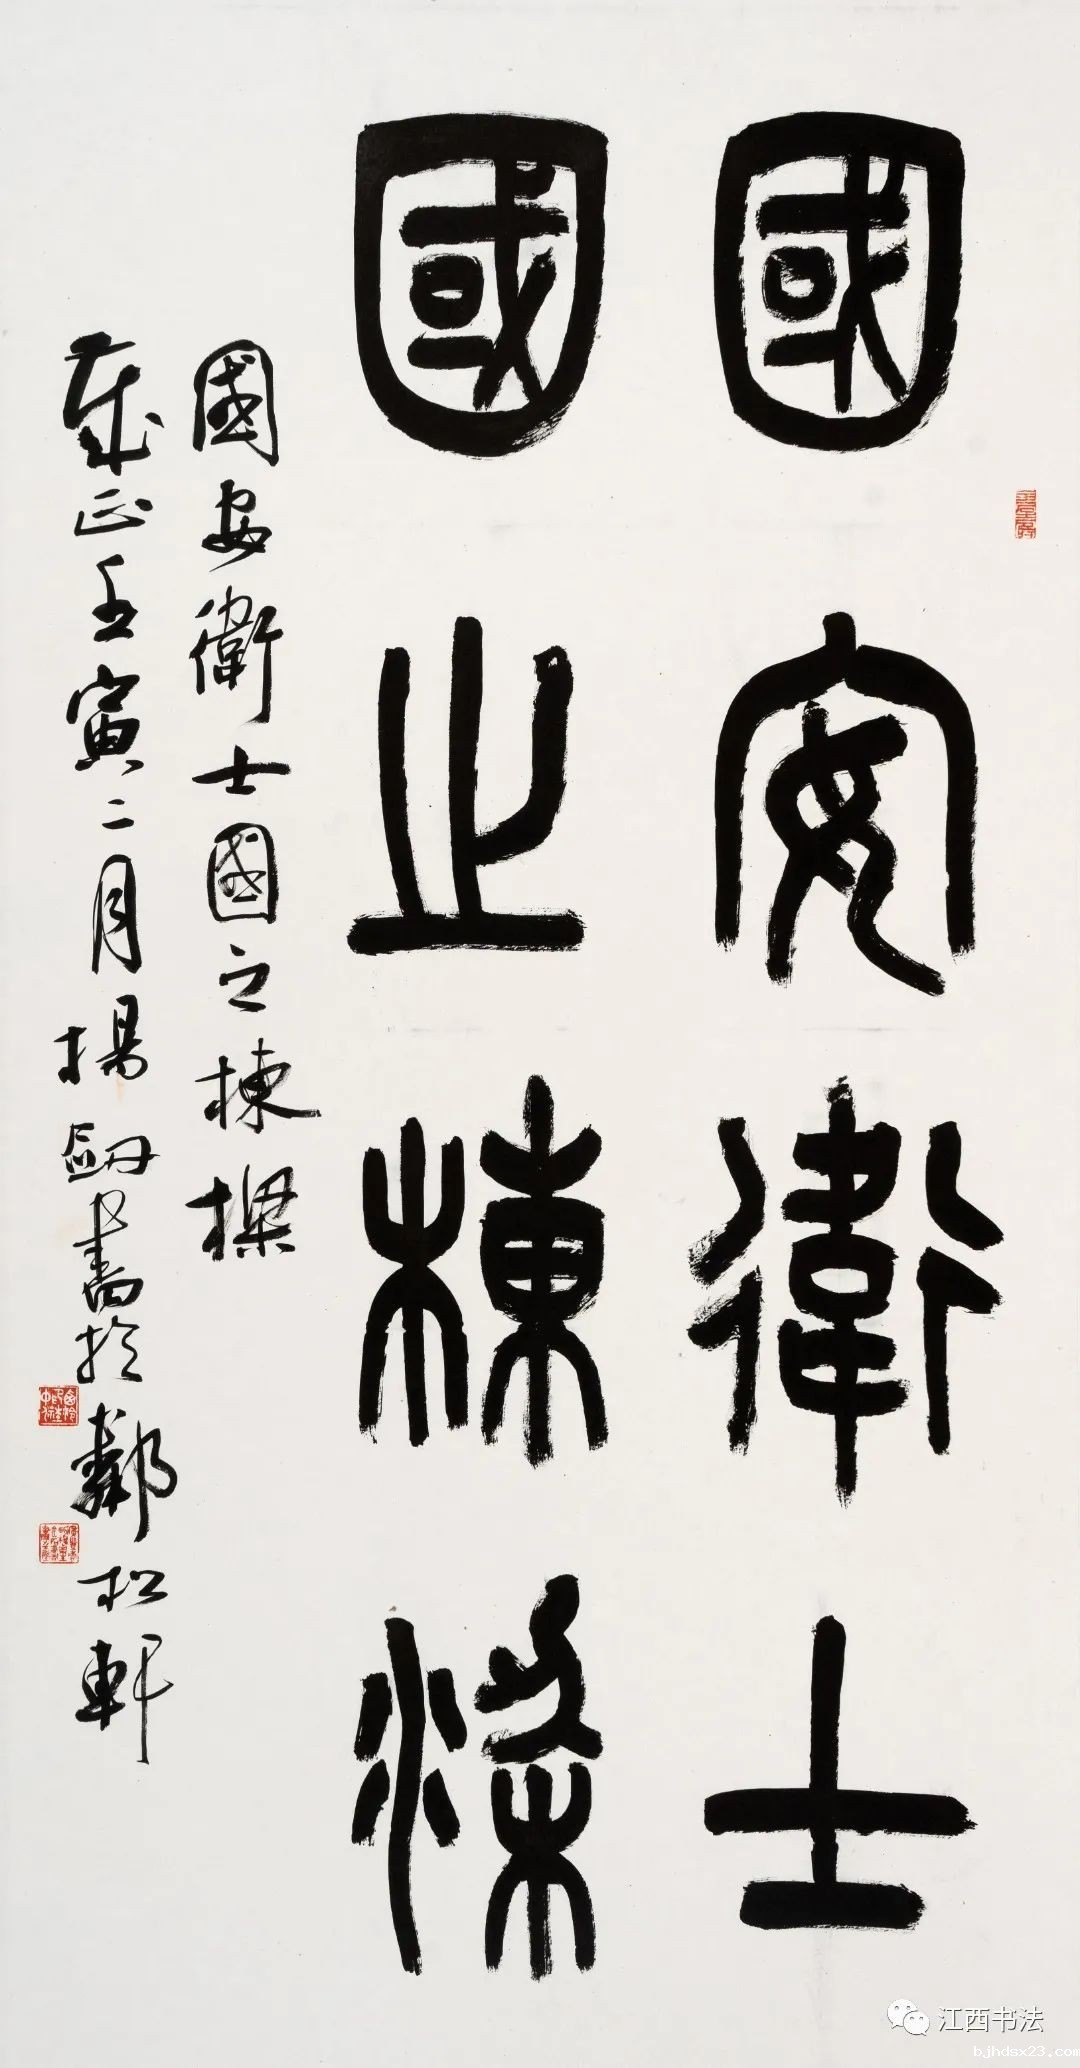 國安衛士
國之棟梁
國安衛士國之棟樑
奉正壬寅二月揚劍書於鄰松軒
江西书法
bjhdsx23.com